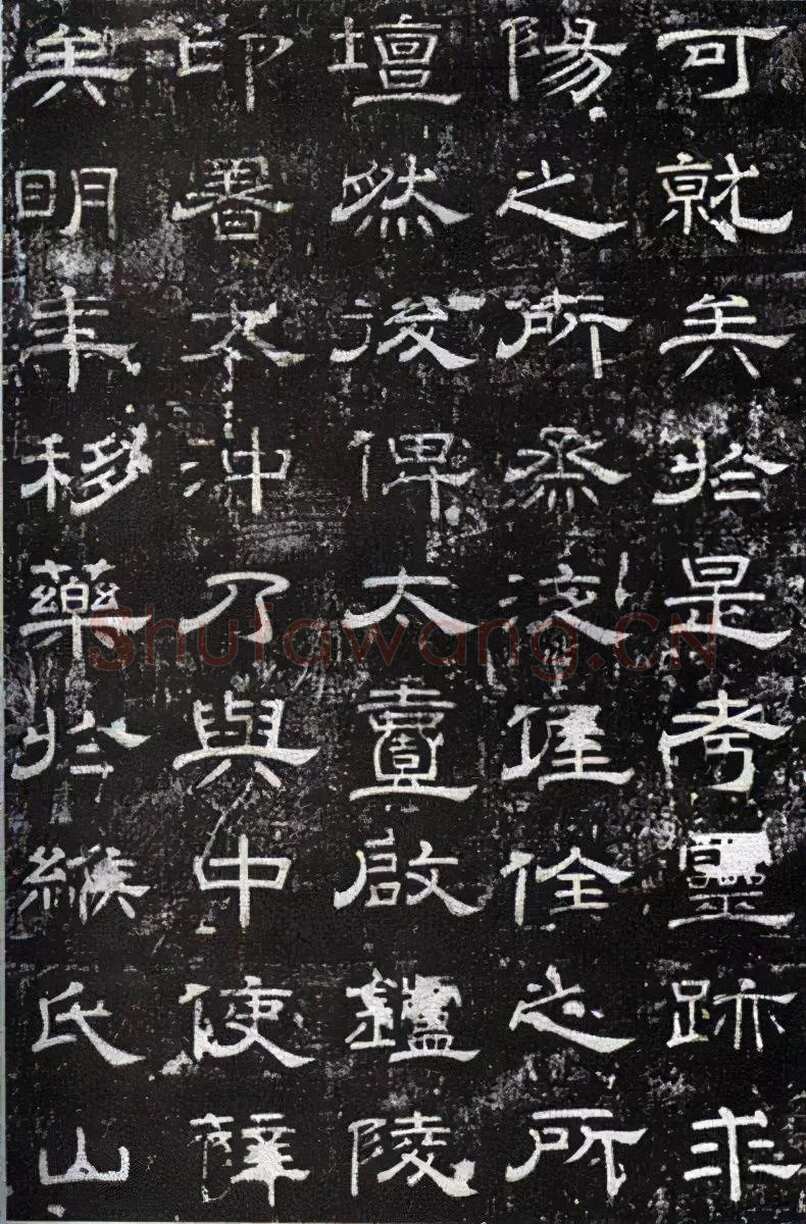 可就矣於是考靈跡求
陽之所烝液偓佺之所
壇然後俾太壹啟鑪陵
印署太沖乃與中使薛
矣明年移藥於緱氏山
Shufawang.CN